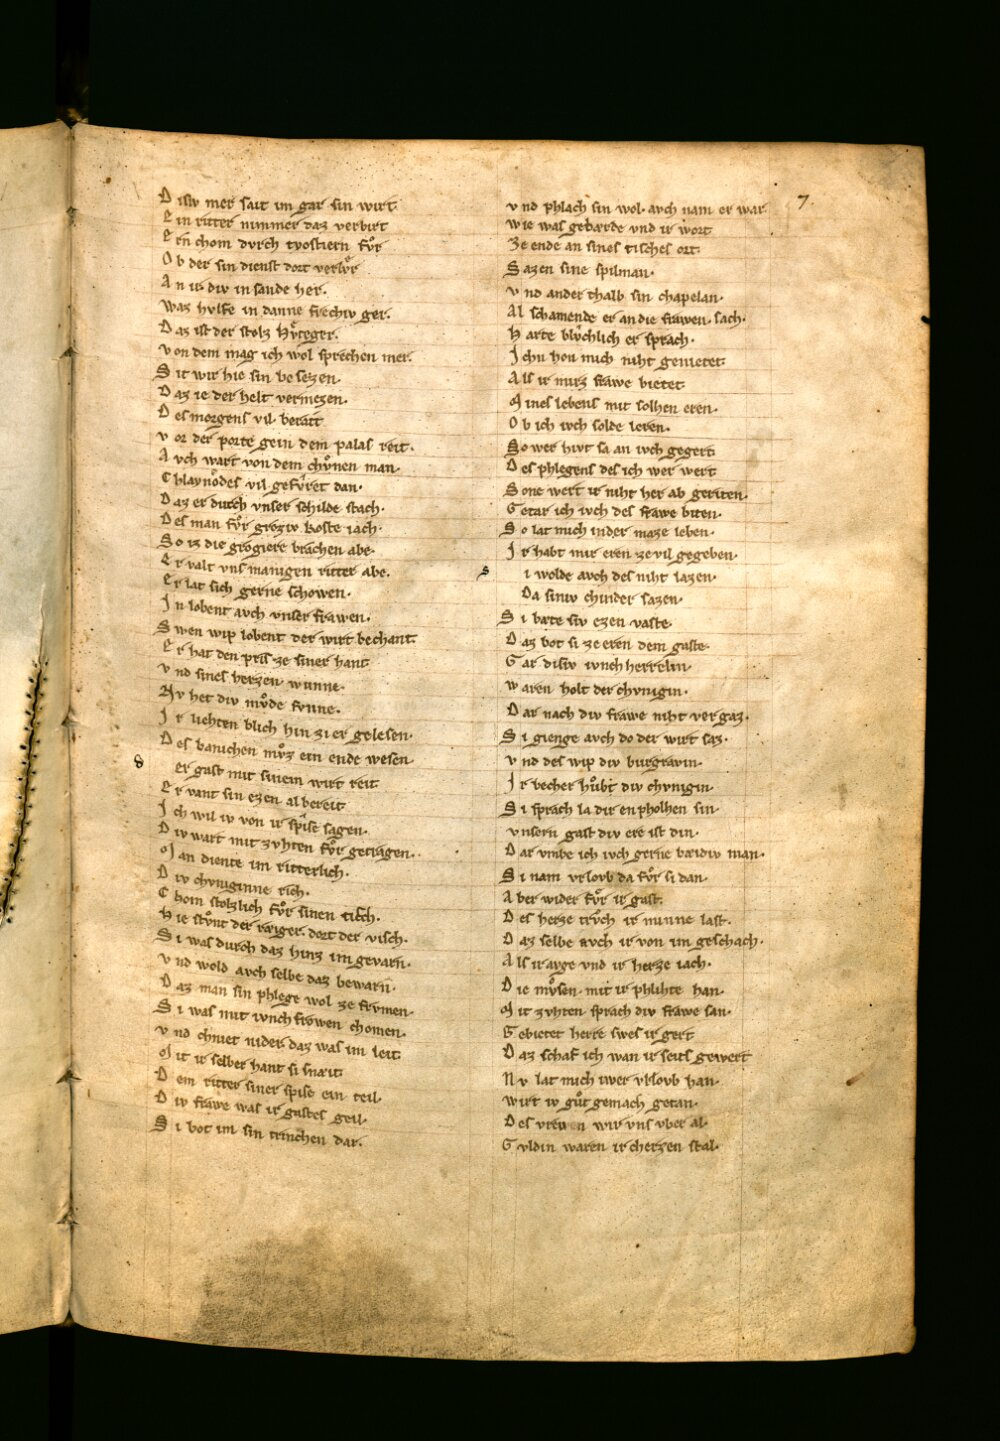 7.
Disiv mer sait im gar sin wirt
Ein ritter nimmer daz verbirt
Ern chom dvrch tyostiern fvͦr
Ob der sin dienst dort verlvͦr
An ir div in sande her.
Waz hvlfe in danne frechiv ger.
Daz ist der stolz Hvͤteger.
von dem mag ich wol sprechen mer.
Sit wir hie sin besezen.
Daz ie der helt vermezen.
Des morgens vil beraitt
vor der porte gein dem palas reit.
Avch wart von dem chvͤnen man.
Chlaynoͤdes vil gefvͤret dan.
Daz er durch vnser schilde stach.
Des man fvͤr groziv koste iach.
So iz die grogiere brachen abe.
Er valt vns manigen ritter abe.
Er lat sich gerne schowen.
In lobent avch vnser frawen.
Swen wip lobent der wirt bechant
Er hat den pris ze siner hant
vnd sines herzen wunne.
Nv het div mvͤde svnne.
Ir liehten blich hin zi er gelesen.
Des banichen mvͦz ein ende wesen.
er gast mit sinem wirt reit
Er vant sin ezen al bereit
Ich wil iv von ir spise sagen.
Div wart mit zvhten fvͤr getragen.
Man diente im ritterlich.
Div chvniginne rich.
Chom stolzlich fvͤr sinen tisch.
Hie stvͦnt der raiger. dort der visch.
Si was durch daz hinz im gevarn.
vnd wold avch selbe daz bewarn.
Daz man sin phlege wol ze frvmen.
Si was mit ivnchfrowen chomen.
vnd chniet nider daz was im leit
Mit ir selber hant si snæit
Dem ritter siner spise ein teil.
Div frawe was ir gastes geil.
Si bot im sin trinchen dar.
vnd phlach sin wol. avch nam er war
wie was gebærde vnd ir wort
Ze ende an sines tisches ort.
Sazen sine spilman.
vnd ander thalb sin chapelan.
Al schamende er an die frawen sach.
Harte blvͤchlich er sprach.
Ichn hon mich niht genietet
Als ir mirz frawe bietet
Mines lebens mit solhen eren.
Ob ich ivch solde leren.
So wer hivt sa an ivch gegert
Des phlegens des ich wer wert
Sone wert ir niht her ab geriten.
Getar ich ivch des frawe biten.
So lat mich in der maze leben.
Ir habt mir eren ze vil gegeben.
i wolde avch des niht lazen.
Da siniv chinder sazen.
Si bæte siv ezen vaste
Daz bot si ze eren dem gaste.
Gar disiv ivnchherrelin.
waren holt der chvnigin.
Dar nach div frawe niht vergaz.
Si gienge avch do der wirt saz.
vnd des wip div burgravin.
Ir becher hvͦbt div chvnigin.
Si sprach la dir enpholhen sin.
vnsern gast div ere ist din.
Dar vmbe ich ivch gerne bæidiv man.
Si nam vrlovb da fvͤr si dan.
Aber wider fvͤr ir gast.
Des herze trvͦch ir minne last.
Daz selbe avch ir von im geschach.
Als ir avge vnd ir herze iach.
Die mvͤsen mit ir phlihte han.
Mit zvhten sprach div frawe san.
Gebietet herre swes ir gert
Daz schaf ich wan ir seits gewert
Nv lat mich iwer vrlovb han.
wirt iv gvͦt gemach getan.
Des vrewen wir vns vber al.
Gvldin waren ir cherzen stal.